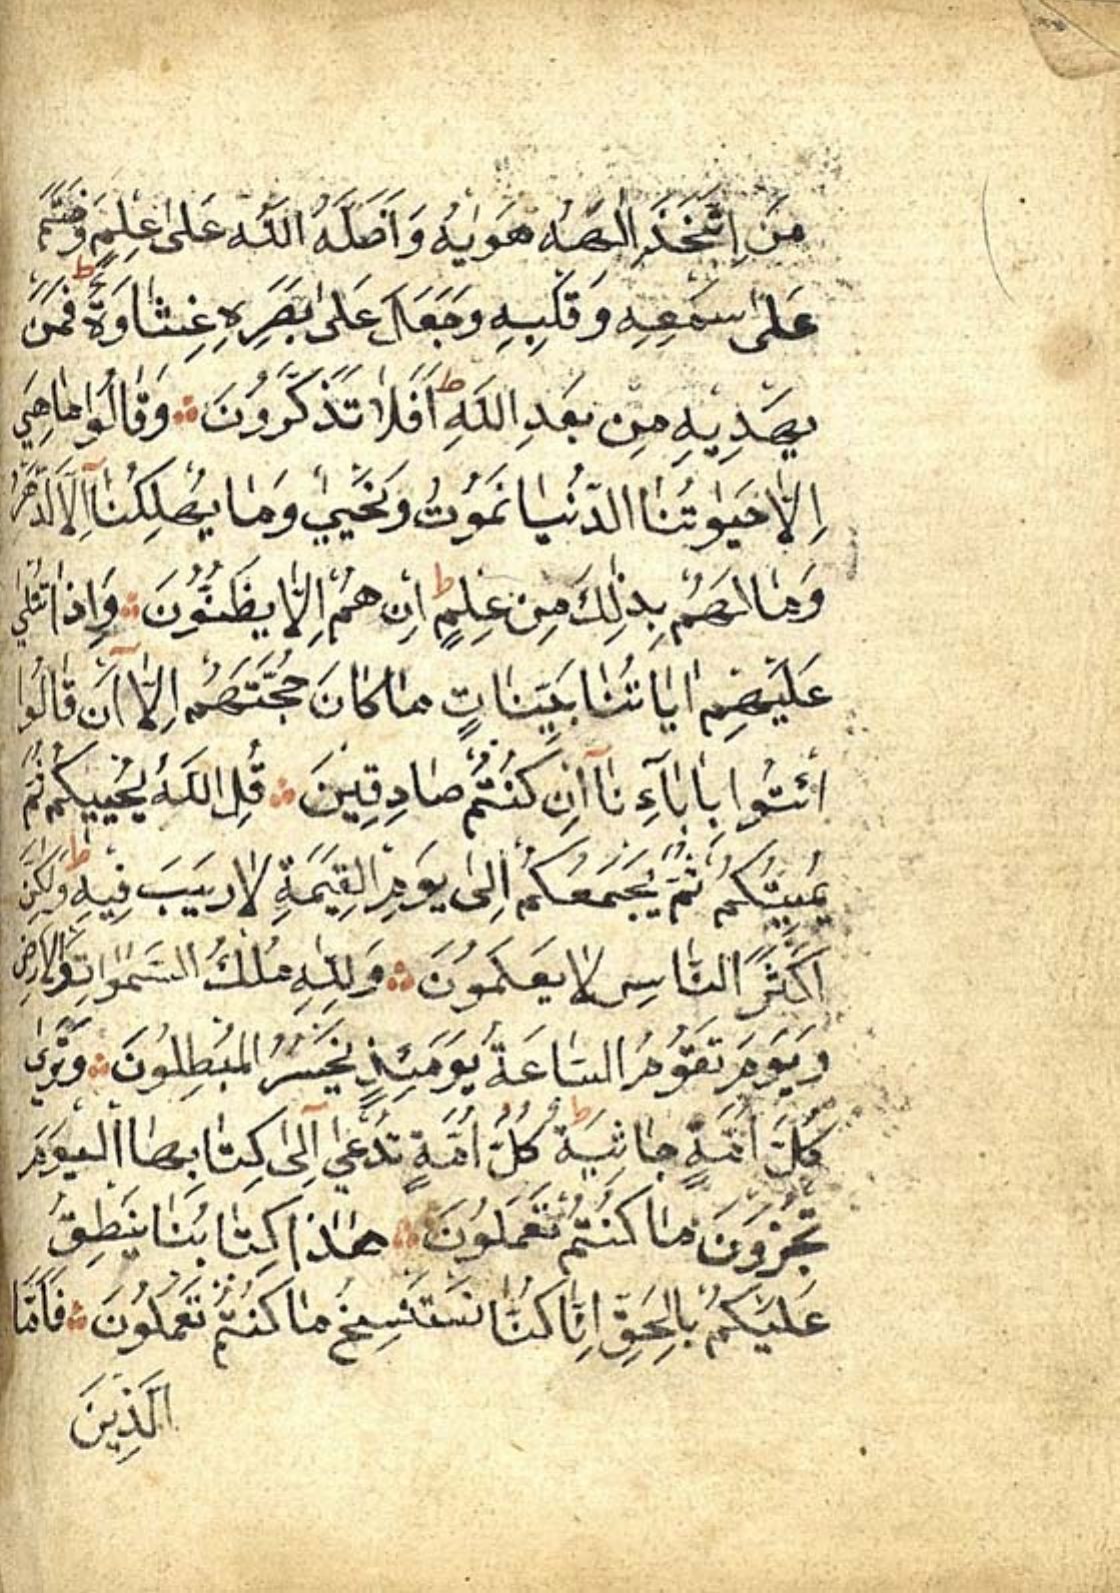 مَنِ اتَّخَذَ اِلٰهَهُ هَوٰيهُ وَاَضَلَّهُ اللّٰهُ عَلٰى عِلْمٍ وَخَتَمَ
عَلٰى سَمْعِهِ وَقَلْبِهِ وَجَعَلَ عَلٰى بَصَرِهِ غِشَاوَةً ط فَمَنْ
يَهْدِيهِ مِنْ بَعْدِ اللّٰهِ ط اَفَلَا تَذَكَّرُونَ ۞ وَقَالُوا مَا هِيَ
اِلَّا حَيٰوتُنَا الدُّنْيَا نَمُوتُ وَنَحْيٰي وَمَا يُهْلِكُنَآ اِلَّا الدَّهْرُ
وَمَا لَهُمْ بِذٰلِكَ مِنْ عِلْمٍ ط اِنْ هُمْ اِلَّا يَظُنُّونَ ۞ وَاِذَا تُتْلٰي
عَلَيْهِمْ اٰيَاتُنَا بَيِّنَاتٍ مَا كَانَ حُجَّتَهُمْ اِلَّآ اَنْ قَالُوا
ائْتُوا بِاٰبَآءِنَآ اِنْ كُنْتُمْ صَادِقِينَ ۞ قُلِ اللّٰهُ يُحْيِيكُمْ ثُمَّ
يُمِيتُكُمْ ثُمَّ يَجْمَعُكُمْ اِلٰى يَوْمِ الْقِيٰمَةِ لَا رَيْبَ فِيهِ ط وَلٰكِنَّ
اَكْثَرَ النَّاسِ لَا يَعْلَمُونَ ۞ وَلِلّٰهِ مُلْكُ السَّمٰوَاتِ وَالْاَرْضِ
وَيَوْمَ تَقُومُ السَّاعَةُ يَوْمَئِذٍ يَخْسَرُ الْمُبْطِلُونَ ۞ وَتَرٰي
كُلَّ اُمَّةٍ جَاثِيَةً ط كُلُّ اُمَّةٍ تُدْعٰي اِلٰى كِتَابِهَا اَلْيَوْمَ
تُجْزَوْنَ مَا كُنْتُمْ تَعْمَلُونَ ۞ هٰذَا كِتَابُنَا يَنْطِقُ
عَلَيْكُمْ بِالْحَقِّ اِنَّا كُنَّا نَسْتَنْسِخُ مَا كُنْتُمْ تَعْمَلُونَ ۞ فَاَمَّا
الَّذِينَ